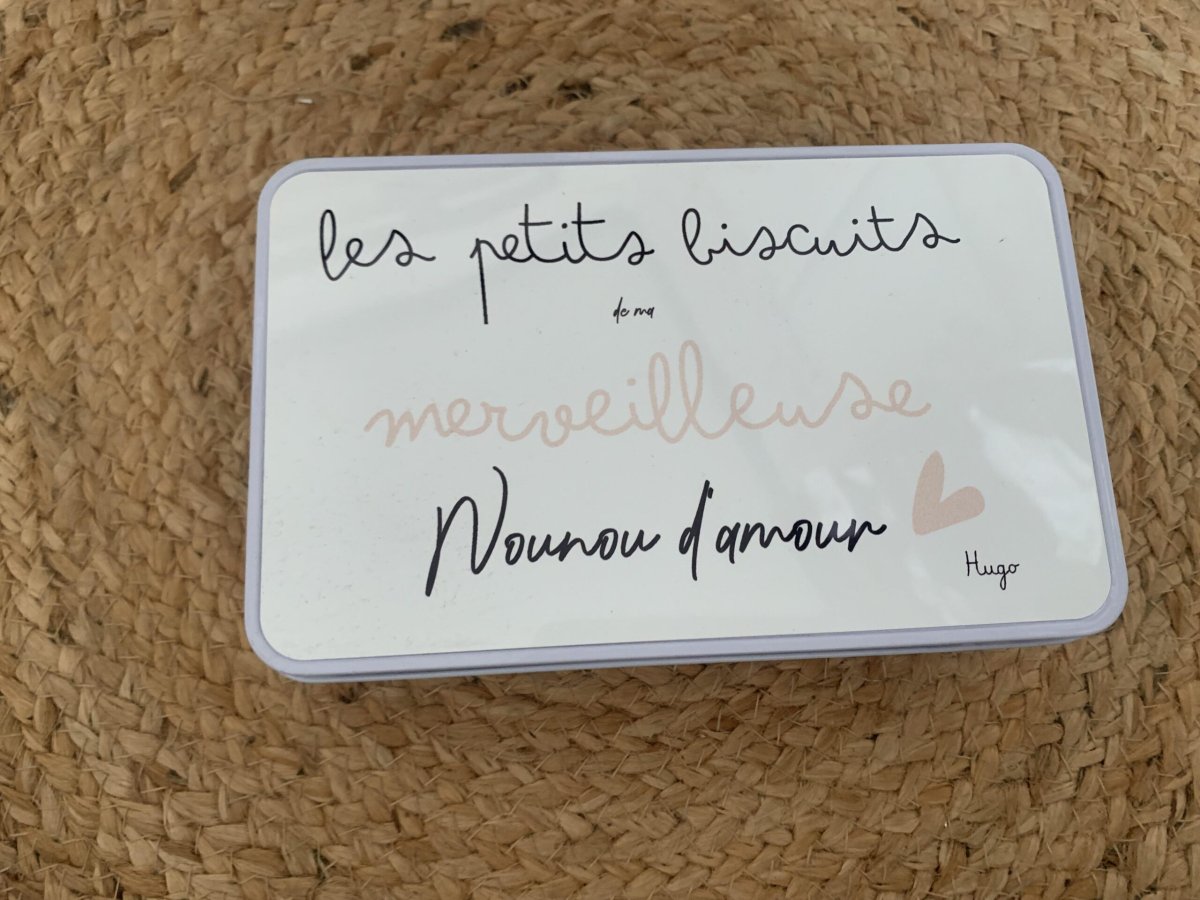 les petits biscuits
de ma
merveilleuse
Nounou d'amour
Hugo